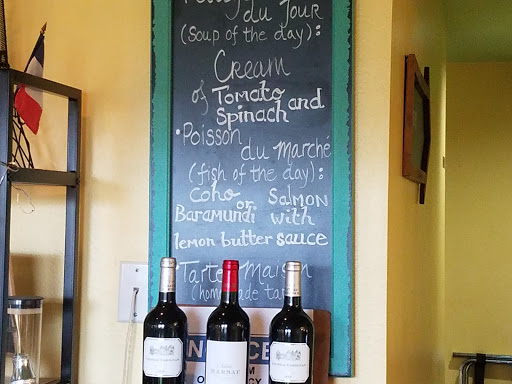 du Jour
(Soup of the day):
Cream
of Tomato and
Spinach
• Poisson
du Marché
(fish of the day):
Coho or Salmon
Baramundi with
lemon butter sauce
Tarte Maison
(homemade